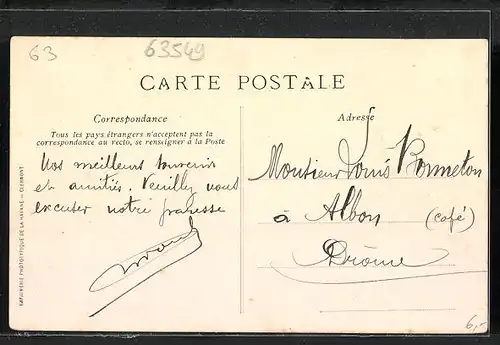 63
63549
CARTE POSTALE
Correspondance
Tous les pays étrangers n'acceptent pas la
correspondance au recto, se renseigner à la Poste
Nos meilleurs souvenirs
et amitiés. Veuillez nous
excuser notre paresse
Adresse
Monsieur Louis Bonneton
à Albon (café)
Drôme
6,-